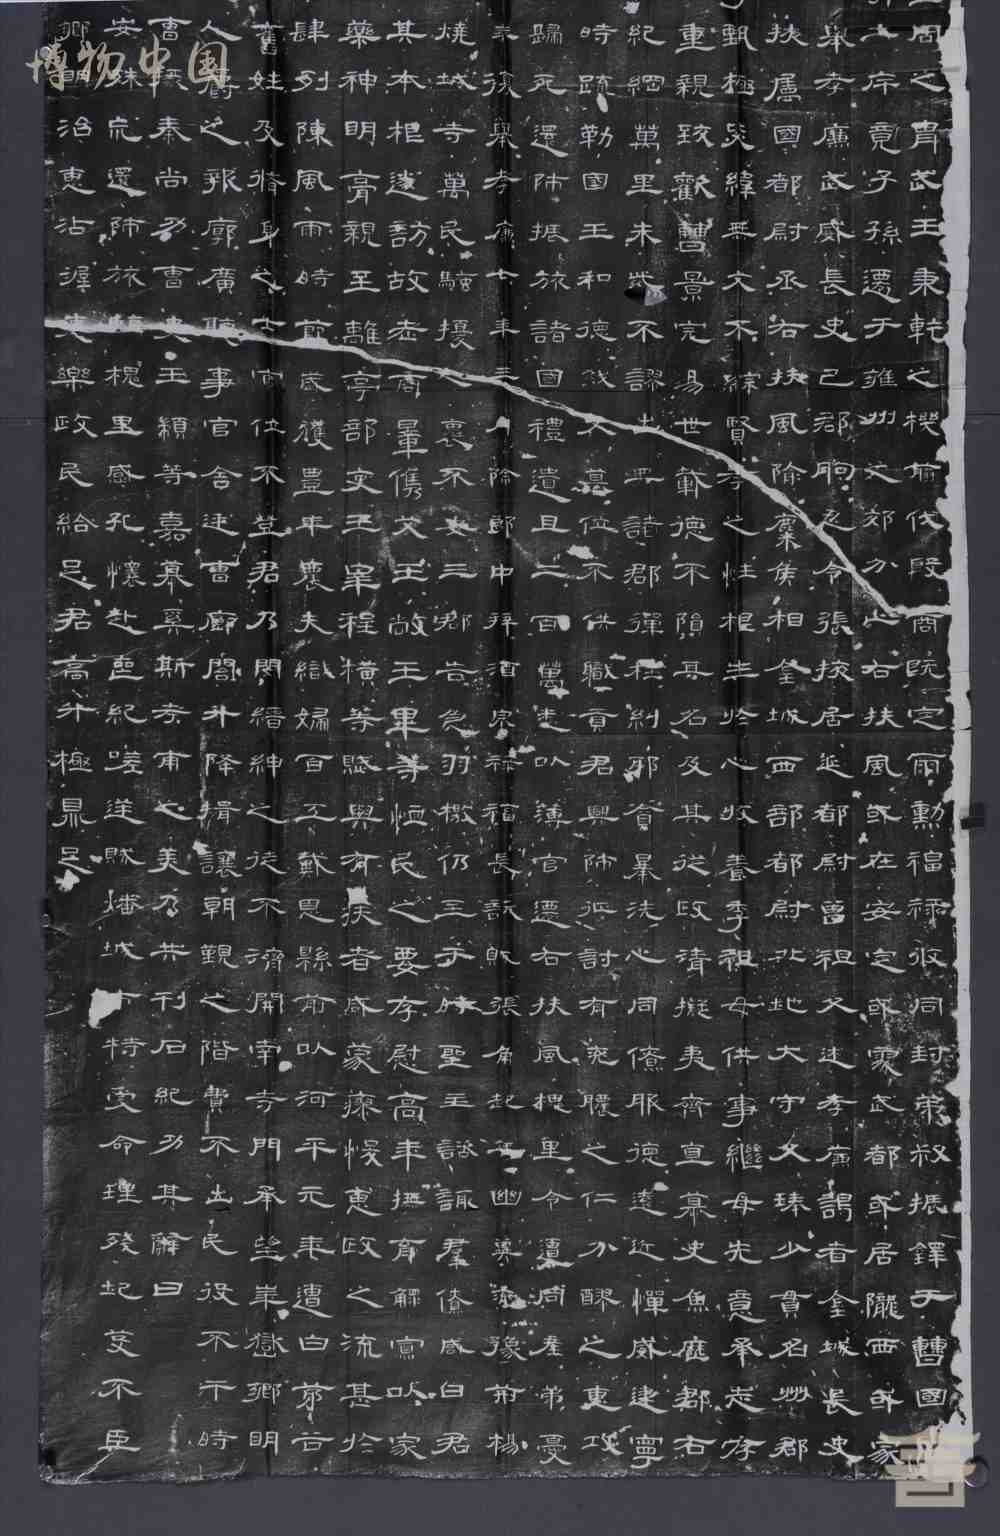 周之胄武王秉乾之機翦伐殷商既定爾勳福祿攸同封弟叔振鐸于曹國
斥竟子孫遷于雍州之郊分止右扶風或在安定或處武都或居隴西或家
舉孝廉武威長史巴郡朐忍令張掖居延都尉曾祖父述孝廉謁者金城長史
掖屬國都尉丞右扶風隃麋侯相金城西部都尉北地大守父琫少貫名州郡
甄極毖緯無文不綜賢孝之性根生於心收養季祖母供事繼母先意承志存
重親致歡曹景完易世載德不隕其名及其從政清擬夷齊直慕史魚歷郡右
紀綱萬里朱紫不謬出典諸郡彈枉糾邪貪暴洗心同僚服德遠近憚威建寧
時疏勒國王和德弒父篡位不供職貢君興師征討有兗膿之仁分醪之惠攻
歸死還師振旅諸國禮遺且二百萬悉以薄官遷右扶風槐里令遭同產弟憂
復舉孝廉七年三月除郎中拜酒泉祿福長訞賊張角起兵幽冀兗豫荊楊
燒城寺萬民騷擾人裹不安三郡告急羽檄仍至于時聖主諮諏群僚咸曰君
其本根遂訪故老商量儁艾王敞王畢等恤民之要存慰高年撫育鰥寡以家
藥神明膏親至離亭部吏王宰程橫等賦與有疾者咸蒙瘳悛惠政之流甚於
肆列陳風雨時節歲獲豐年農夫織婦百工戴恩縣前以河平元年遭白茅谷
舊姓及脩身之士官位不登君乃閔縉紳之徒不濟開南寺門承望華嶽鄉明
人爵之報廓廣聽事官舍廷曹廊閤升降揖讓朝覲之階費不出民役不干時
曹掾秦尚功曹史王顓等嘉慕奚斯考甫之美乃共刊石紀功其辭曰
安殊巟還師旅臨槐里感孔懷赴喪紀嗟逆賊燔城市特受命理殘圮芟不臣
鄉明治惠沾渥吏樂政民給足君高升極鼎足
博物中国